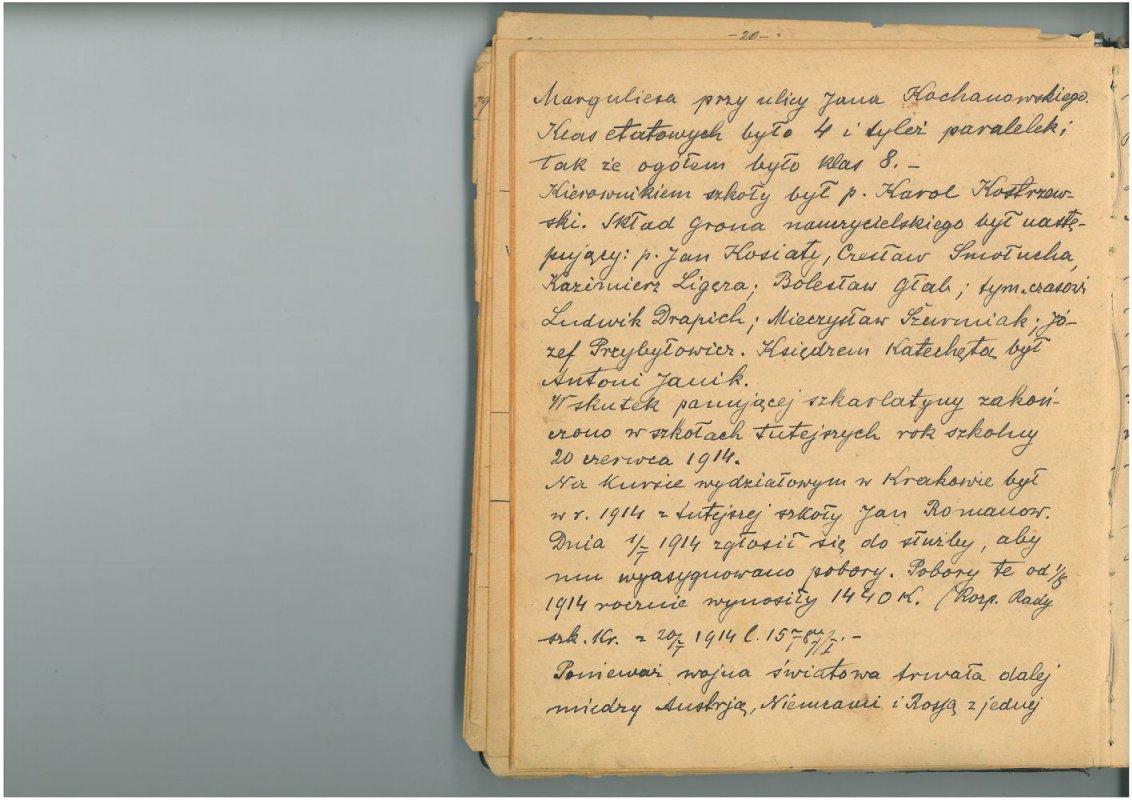 -20-
Marguliesa przy ulicy Jana Kochanowskiego.
Klas etatowych było 4 i tyleż paralelek;
tak że ogółem było klas 8. -
Kierownikiem szkoły był p. Karol Kostrzew-
ski. Skład Grona nauczycielskiego był nastę-
pujący: p. Jan Kosiaty, Czesław Smołucha,
Kazimierz Ligęza; Bolesław Głąb; tymczasowi
Ludwik Drapich; Mieczysław Szurmiak; Jó-
zef Przybyłowicz. Księdzem Katechętą był
Antoni Janik.
Wskutek panującej szkarlatyny zakoń-
czono w szkołach tutejszych rok szkolny
20 czerwca 1914.
Na kursie wydziałowym w Krakowie był
w r. 1914 z tutejszej szkoły Jan Romanow.
Dnia 1914 zgłosił się do służby, aby
mu wyasygnowano pobory. Pobory te od
1914 rocznie wynosiły 1440 K. (Rozp. Rady
szk. Kr. z 1914 l.
Ponieważ wojna światowa trwała dalej
między Austrją, Niemcami i Rosją z jednej